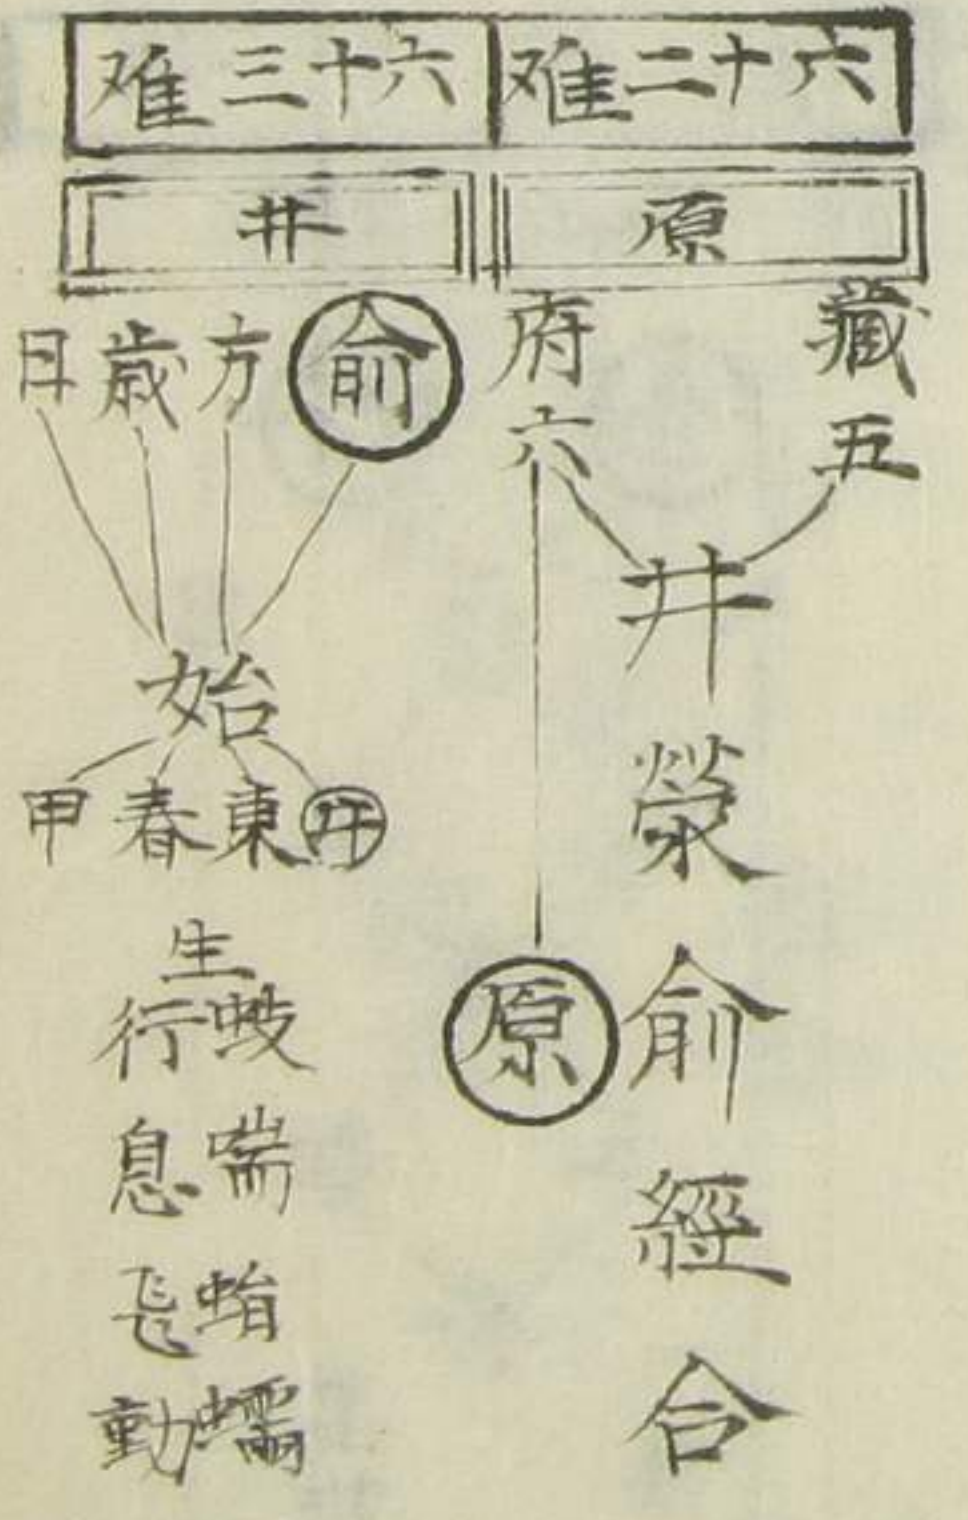 六十二难
原
藏五
府六
井
滎
俞
原
經
合
六十三难
井
俞 方 歳 日
始
井 東 春 甲
生
蚑行
喘息
蜎飛
蠕動